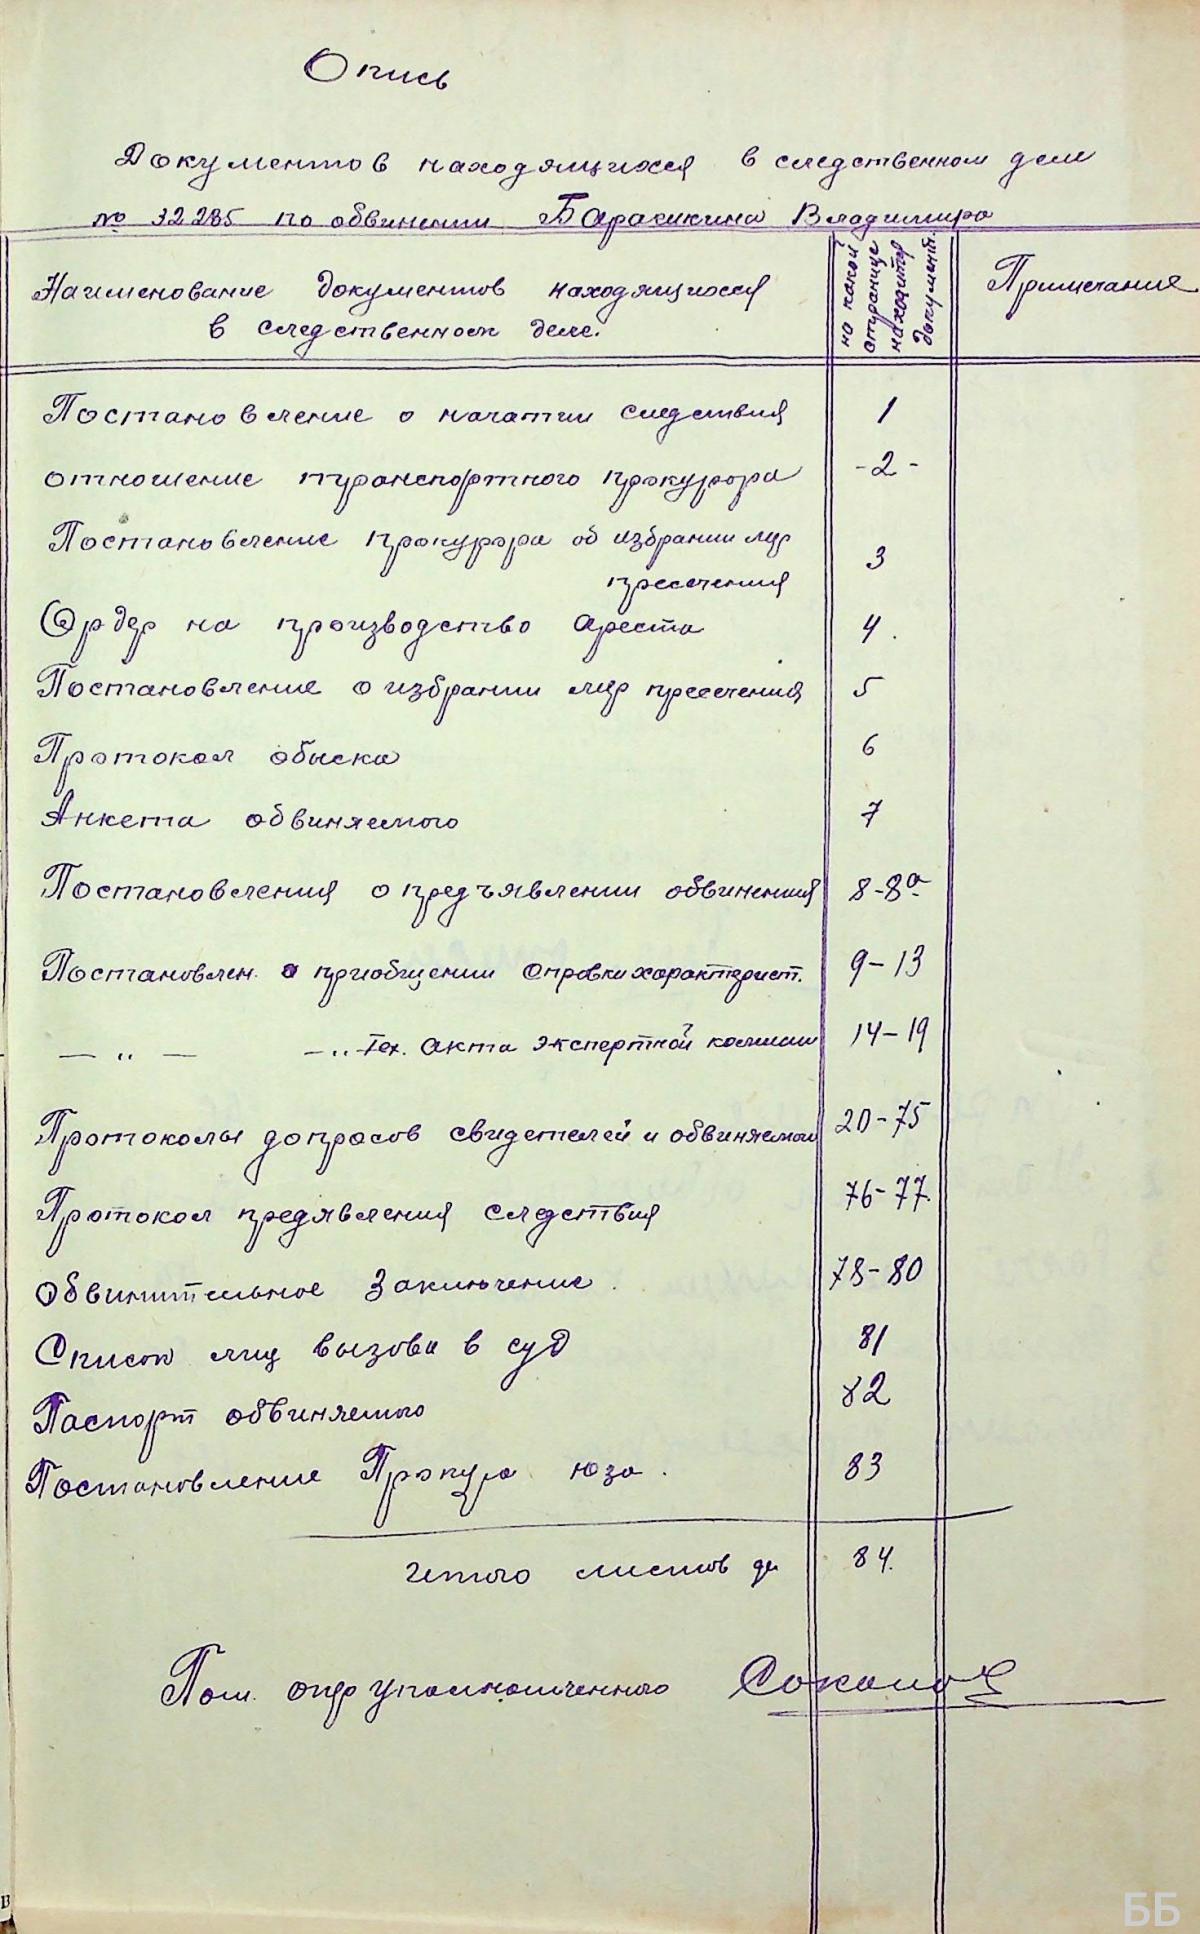 Опись
Документов находящихся в следственном деле
№ 32285 по обвинении Баракикина Владимира
Наименование документов находящихся
в следственном деле.
на какой
странице
находится
документ.
Примечание
Постановление о начатии следствия 1
отношение транспортного прокурора -2-
Постановление прокурора об избрании мер
пресечения 3
Ордер на производство ареста 4.
Постановление о избрании мер пресечения 5
Протокол обыска 6
Анкета обвиняемого 7
Постановления о предъявлении обвинения 8-8а
Постановлен. о приобщении справки характерист. 9-13
— " — — " Тех. акта экспертной комисии 14-19
Протоколы допросов свидетелей и обвиняемого 20-75
Протокол предявления следствия 76-77.
Обвинительное Заключение. 78-80
Список лиц вызова в суд 81
Паспорт обвиняемого 82
Постановление Прокура юза. 83
Итого листов де 84.
Пом. опер уполномоченного Соколов
ББ